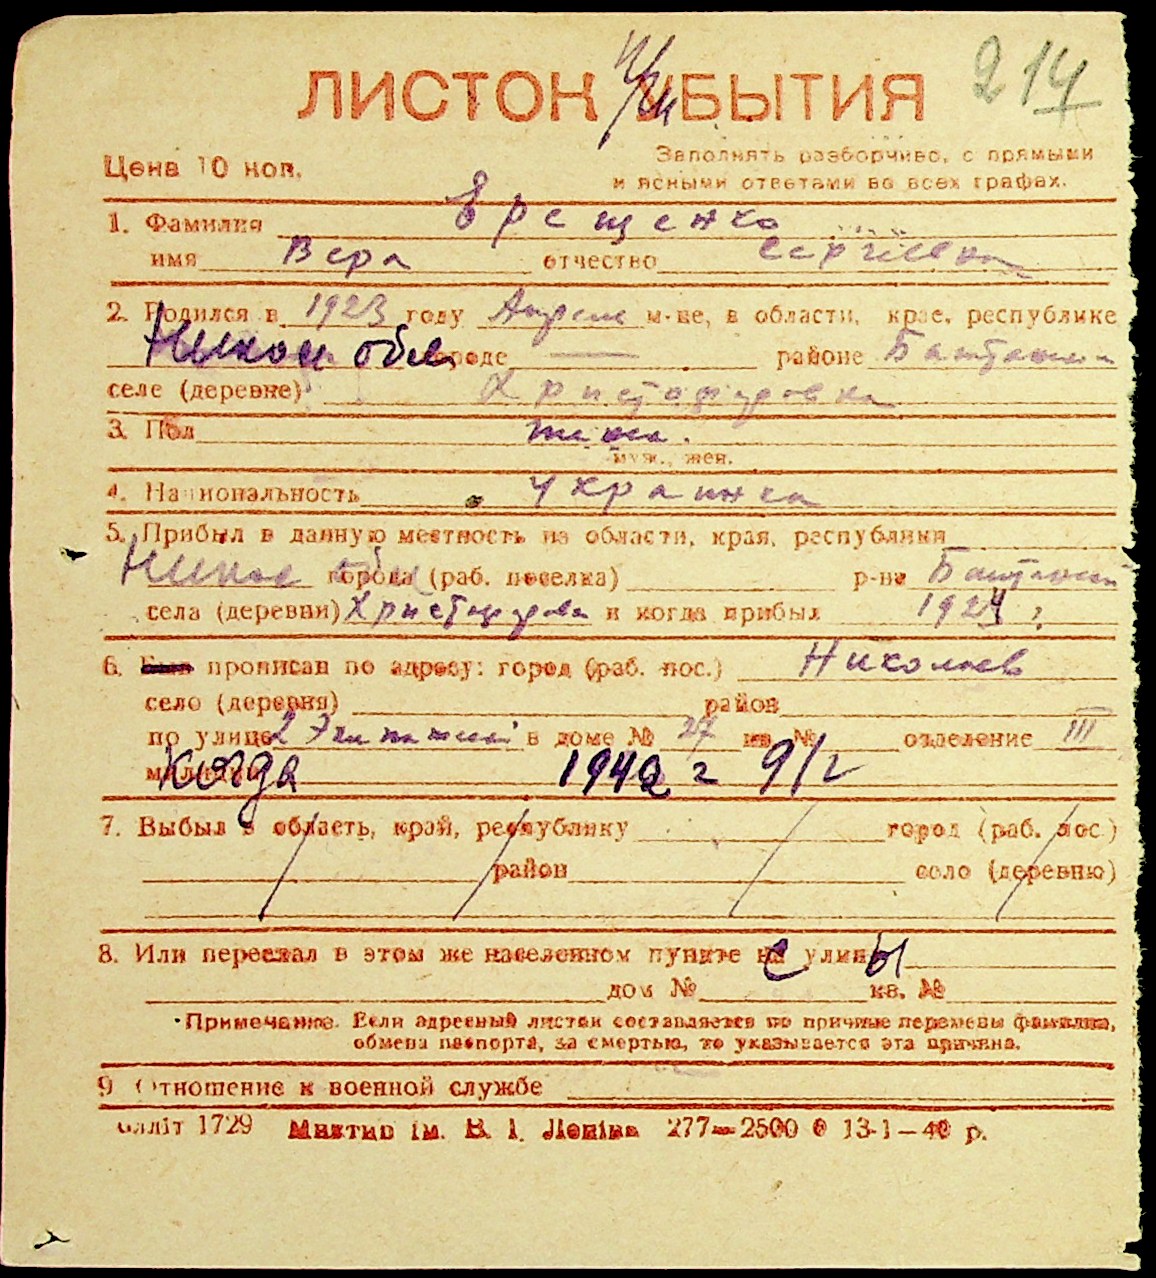 214
ЛИСТОК УБЫТИЯ
Цена 10 коп.
Заполнять разборчиво, с прямыми
и ясными ответами во всех графах.
1. Фамилия Ерещенко
имя Вера отчество Сергеевна
2. Родился в 1923 году Апреле м-це, в области, крае, республике
Никол обл городе — районе Баштански
селе (деревне) Христофоровка
3. Пол жен.
муж., жен.
4. Национальность украинка
5. Прибыл в данную местность из области, края, республики
Никол обл города (раб. поселка) р-на Баштански
села (деревни) Христофоровка и когда прибыл 1924 г.
6. Был прописан по адресу: город (раб. пос.) Николаев
село (деревня) район
по улице 2 Экипажной в доме № 27 кв. № отделение III
милиции Когда 1942 г 9/I
7. Выбыл в область, край, республику город (раб. пос.)
район село (деревню)
8. Или переехал в этом же населенном пункте с улицы
дом № кв. №
Примечание. Если адресный листок составляется по причине перемены фамилии,
обмена паспорта, за смертью, то указывается эта причина.
9 Отношение к военной службе
1729 Миктип ім. В. І. Леніна 277—2500 0 13-1—40 р.